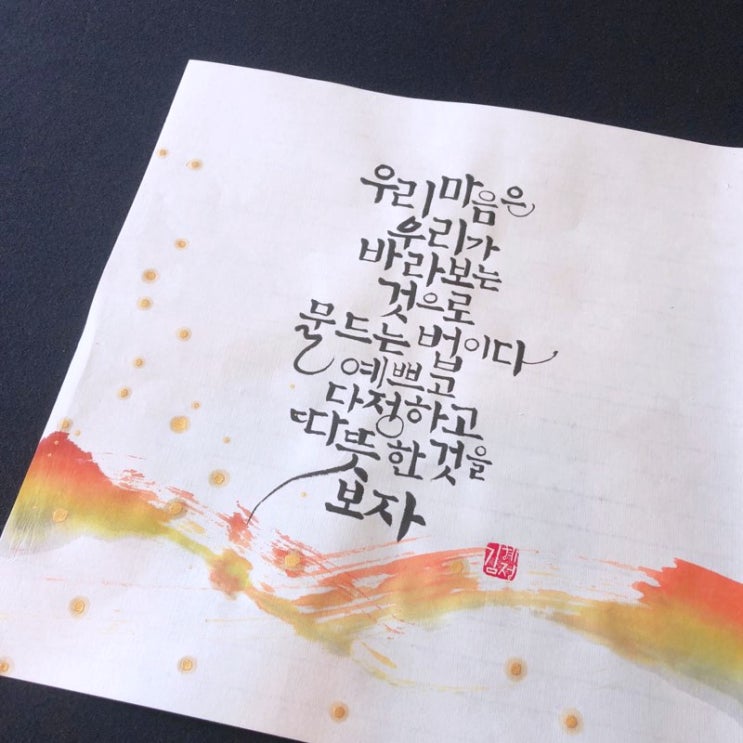 우리 마음은
우리가
바라보는
것으로
물드는 법이다
예쁘고
다정하고
따뜻한 것을
보자